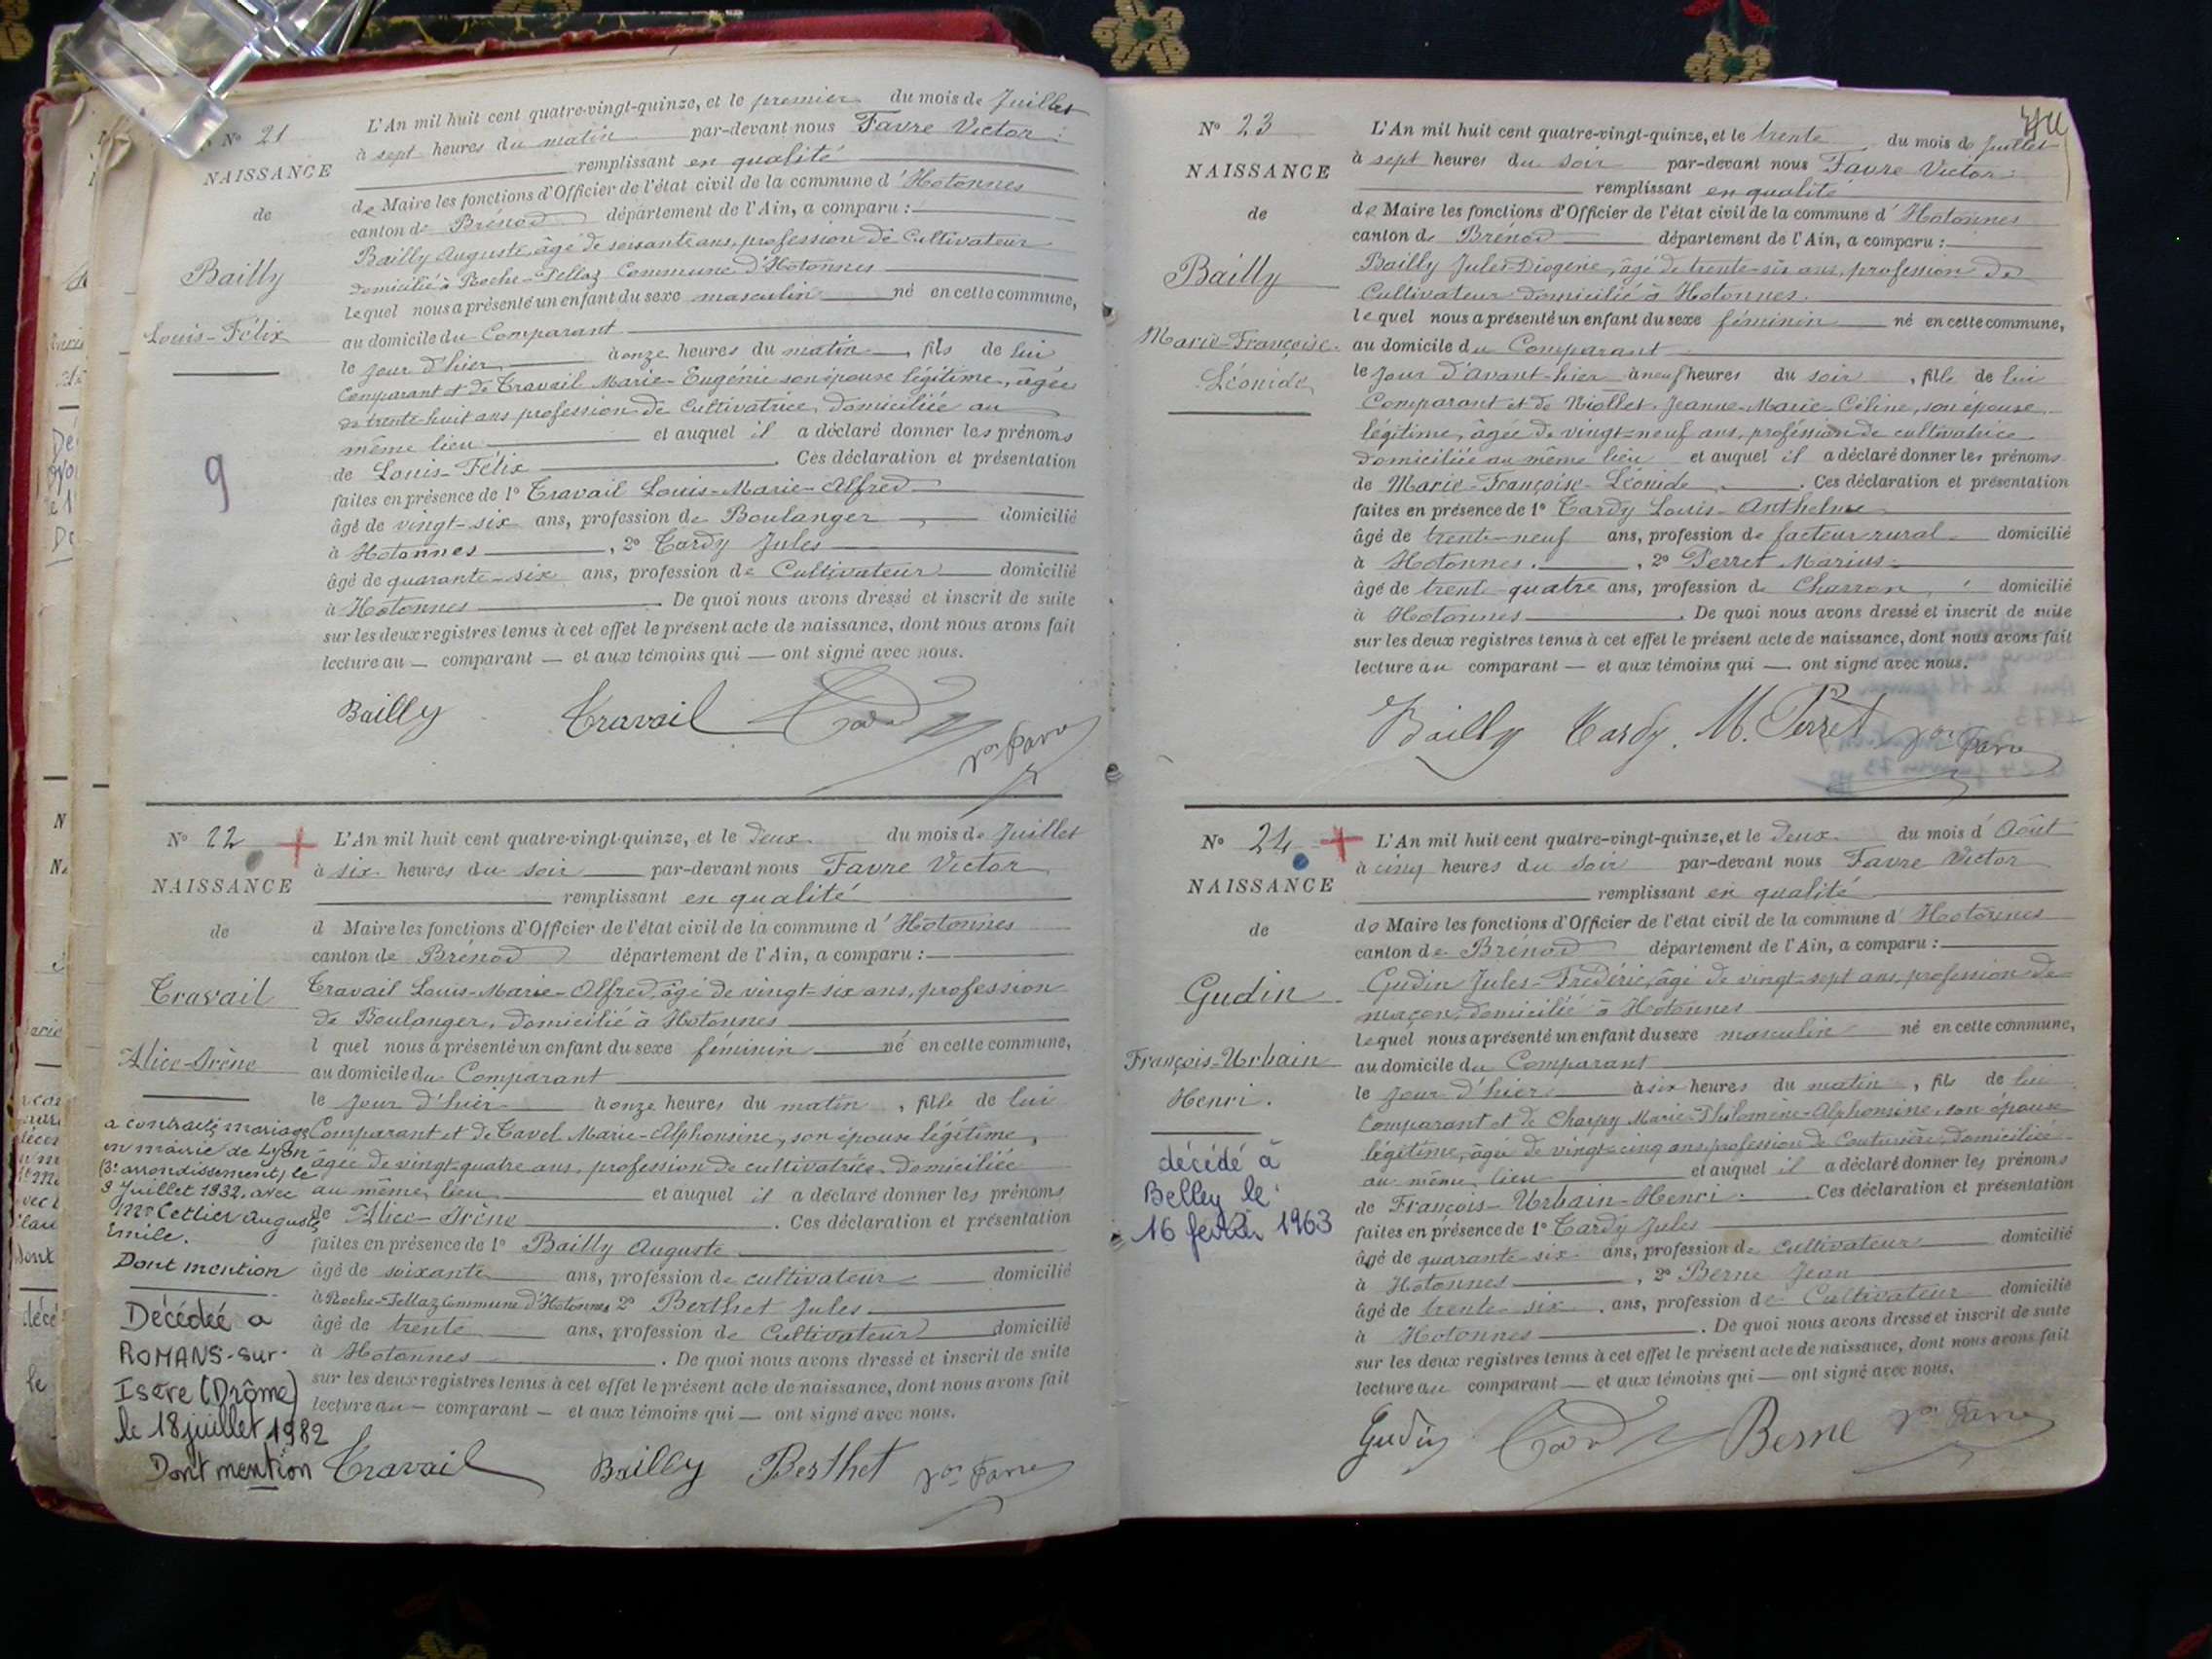 N° 21
NAISSANCE
de
Bailly
Louis-Félix
9
L'An mil huit cent quatre-vingt-quinze, et le premier du mois de Juillet
à sept heures du matin par-devant nous Favre Victor :
remplissant en qualité
de Maire les fonctions d'Officier de l'état civil de la commune d'Hotonnes
canton de Brénod département de l'Ain, a comparu :
Bailly Auguste, âgé de soixante ans, profession de Cultivateur
domicilié à Roche-Fellaz Commune d'Hotonnes
lequel nous a présenté un enfant du sexe masculin né en cette commune,
au domicile du Comparant
le jour d'hier à onze heures du matin, fils de lui
Comparant et de Travail Marie-Eugénie son épouse légitime, âgée
de trente-huit ans profession de Cultivatrice, domiciliée au
même lieu et auquel il a déclaré donner les prénoms
de Louis-Félix. Ces déclaration et présentation
faites en présence de 1° Travail Louis-Marie-Alfred
âgé de vingt-six ans, profession de Boulanger, domicilié
à Hotonnes, 2° Tardy Jules
âgé de quarante-six ans, profession de Cultivateur domicilié
à Hotonnes. De quoi nous avons dressé et inscrit de suite
sur les deux registres tenus à cet effet le présent acte de naissance, dont nous avons fait
lecture au comparant et aux témoins qui ont signé avec nous.
Bailly Travail Tardy Vor Favre
N° 22
NAISSANCE
de
Travail
Alice-Irène
a contracté mariage
en mairie de Lyon
(3e arrondissement) le
9 Juillet 1932, avec
Mr Cettier Auguste
Emile.
Dont mention
Décédée a
ROMANS-sur-
Isère (Drôme)
le 18 juillet 1982
Dont mention
L'An mil huit cent quatre-vingt-quinze, et le deux du mois de Juillet
à six heures du soir par-devant nous Favre Victor
remplissant en qualité
d Maire les fonctions d'Officier de l'état civil de la commune d'Hotonnes
canton de Brénod département de l'Ain, a comparu :
Travail Louis-Marie-Alfred, âgé de vingt-six ans, profession
de Boulanger, domicilié à Hotonnes
l quel nous a présenté un enfant du sexe féminin né en cette commune,
au domicile du Comparant
le jour d'hier à onze heures du matin, fille de lui
Comparant et de Tavel Marie-Alphonsine, son épouse légitime,
âgée de vingt-quatre ans, profession de cultivatrice, domiciliée
au même lieu et auquel il a déclaré donner les prénoms
de Alice-Irène. Ces déclaration et présentation
faites en présence de 1° Bailly Auguste
âgé de soixante ans, profession de cultivateur domicilié
à Roche-Fellaz Commune d'Hotonnes 2° Berthet Jules
âgé de trente ans, profession de Cultivateur domicilié
à Hotonnes. De quoi nous avons dressé et inscrit de suite
sur les deux registres tenus à cet effet le présent acte de naissance, dont nous avons fait
lecture au comparant et aux témoins qui ont signé avec nous.
Travail Bailly Berthet Vor Favre
N° 23
NAISSANCE
de
Bailly
Marie-Françoise-
Léonide
L'An mil huit cent quatre-vingt-quinze, et le trente du mois de Juillet
à sept heures du soir par-devant nous Favre Victor :
remplissant en qualité
de Maire les fonctions d'Officier de l'état civil de la commune d'Hotonnes
canton de Brénod département de l'Ain, a comparu :
Bailly Jules-Diogène, âgé de trente-six ans, profession de
Cultivateur domicilié à Hotonnes.
lequel nous a présenté un enfant du sexe féminin né en cette commune,
au domicile du Comparant
le jour d'avant-hier à neuf heures du soir, fille de lui
Comparant et de Niollet Jeanne-Marie-Céline, son épouse
légitime, âgée de vingt-neuf ans, profession de cultivatrice
domiciliée au même lieu et auquel il a déclaré donner les prénoms
de Marie-Françoise-Léonide. Ces déclaration et présentation
faites en présence de 1° Tardy Louis-Anthelme
âgé de trente-neuf ans, profession de facteur rural domicilié
à Hotonnes, 2° Perret Marius
âgé de trente-quatre ans, profession de Charron, domicilié
à Hotonnes. De quoi nous avons dressé et inscrit de suite
sur les deux registres tenus à cet effet le présent acte de naissance, dont nous avons fait
lecture au comparant et aux témoins qui ont signé avec nous.
Bailly Tardy. M. Perret Vor Favre
N° 24
NAISSANCE
de
Gudin
François-Urbain
Henri.
décédé à
Belley le
16 février 1963
L'An mil huit cent quatre-vingt-quinze, et le deux du mois d'Août
à cinq heures du soir par-devant nous Favre Victor
remplissant en qualité
de Maire les fonctions d'Officier de l'état civil de la commune d'Hotonnes
canton de Brénod département de l'Ain, a comparu :
Gudin Jules-Frédéric, âgé de vingt-sept ans, profession de
maçon, domicilié à Hotonnes
lequel nous a présenté un enfant du sexe masculin né en cette commune,
au domicile du Comparant
le jour d'hier à six heures du matin, fils de lui
Comparant et de Charpy Marie-Philomène-Alphonsine, son épouse
légitime, âgée de vingt-cinq ans, profession de Couturière, domiciliée
au même lieu et auquel il a déclaré donner les prénoms
de François-Urbain-Henri. Ces déclaration et présentation
faites en présence de 1° Tardy Jules
âgé de quarante-six ans, profession de cultivateur domicilié
à Hotonnes, 2° Berne Jean
âgé de trente-six, ans, profession de Cultivateur domicilié
à Hotonnes. De quoi nous avons dressé et inscrit de suite
sur les deux registres tenus à cet effet le présent acte de naissance, dont nous avons fait
lecture au comparant et aux témoins qui ont signé avec nous.
Gudin Tardy Berne Vor Favre